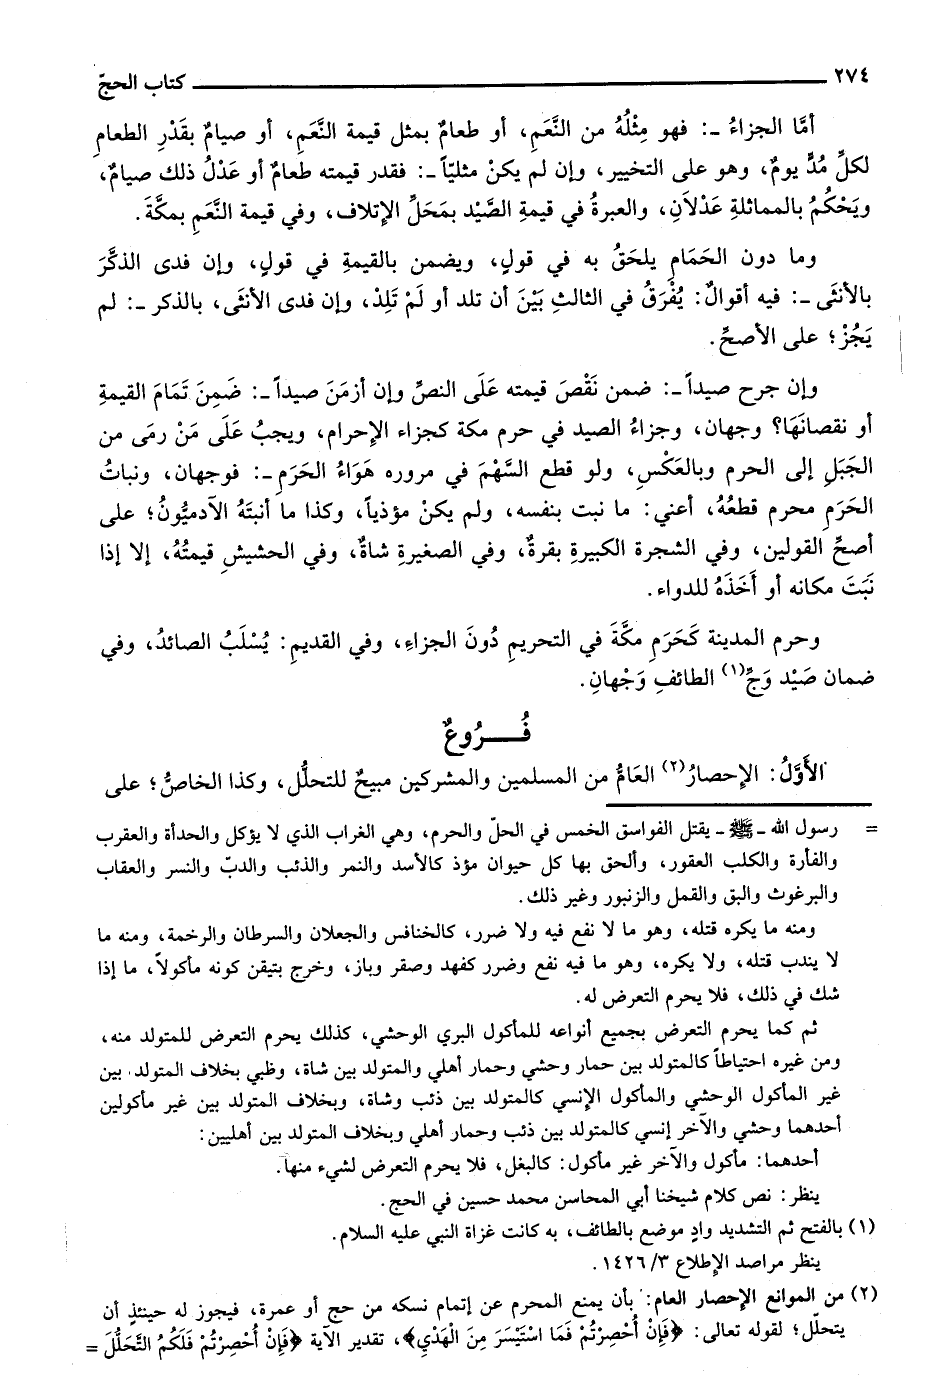 ٢٧٤ كتاب الحجّ
أمَّا الجزاءُ ـ: فهو مِثْلُهُ من النَّعَمِ، أو طعامٌ بمثل قيمة النَّعَمِ، أو صيامٌ بقَدْرِ الطعامِ
لكلِّ مُدٍّ يومٌ، وهو على التخيير، وإن لم يكنْ مثليّاً ـ: فقدر قيمته طعامٌ أو عَدْلُ ذلك صيامٌ،
ويَحْكُمُ بالمماثلةِ عَدْلاَنِ، والعبرةُ في قيمةِ الصَّيْد بمَحَلِّ الإتلاف، وفي قيمة النَّعَم بمكَّةَ.
وما دون الحَمَامِ يلحَقُ به في قولٍ، ويضمن بالقيمةِ في قولٍ، وإن فدى الذكَّرَ
بالأنثَى ـ: فيه أقوالٌ: يُفْرَقُ في الثالثِ بَيْنَ أن تلد أو لَمْ تَلِدْ، وإن فدى الأنثَى، بالذكر ـ: لم
يَجُزْ؛ على الأصحِّ.
وإن جرح صيداً ـ: ضمن نَقْصَ قيمته عَلَى النصِّ وإن أزمَنَ صيداً ـ: ضَمِنَ تَمَامَ القيمةِ
أو نقصانَهَا؟ وجهان، وجزاءُ الصيد في حرم مكة كجزاء الإحرام، ويجبُ عَلَى مَنْ رمَى من
الجَبَلِ إلى الحرم وبالعَكْسِ، ولو قطع السَّهْمَ في مروره هَوَاءُ الحَرَمِ ـ: فوجهان، ونباتُ
الحَرَمِ محرم قطعُهُ، أعني: ما نبت بنفسه، ولم يكنْ مؤذياً، وكذا ما أنبتَهُ الآدميُّونُ؛ على
أصحِّ القولين، وفي الشجرة الكبيرةِ بقرةٌ، وفي الصغيرةِ شاةٌ، وفي الحشيشِ قيمتُهُ، إلا إذا
نَبَتَ مكانه أو أَخَذَهُ للدواء.
وحرم المدينة كَحَرَمِ مكَّةَ في التحريمِ دُونَ الجزاءِ، وفي القديمِ: يُسْلَبُ الصائدُ، وفي
ضمان صَيْد وَجٍّ(١) الطائفِ وَجْهانِ.
فُـــرُوعٌ
الأَوَّلُ: الإحصارُ(٢) العَامُّ من المسلمين والمشركين مبيحٌ للتحلُّل، وكذا الخاصُّ؛ على
= رسول الله ـ ﷺ ـ يقتل الفواسق الخمس في الحلّ والحرم، وهي الغراب الذي لا يؤكل والحدأة والعقرب
والفأرة والكلب العقور، وألحق بها كل حيوان مؤذ كالأسد والنمر والذئب والدبّ والنسر والعقاب
والبرغوث والبق والقمل والزنبور وغير ذلك.
ومنه ما يكره قتله، وهو ما لا نفع فيه ولا ضرر، كالخنافس والجعلان والسرطان والرخمة، ومنه ما
لا يندب قتله، ولا يكره، وهو ما فيه نفع وضرر كفهد وصقر وباز، وخرج بتيقن كونه مأكولاً، ما إذا
شك في ذلك، فلا يحرم التعرض له.
ثم كما يحرم التعرض بجميع أنواعه للمأكول البري الوحشي، كذلك يحرم التعرض للمتولد منه،
ومن غيره احتياطاً كالمتولد بين حمار وحشي وحمار أهلي والمتولد بين شاة، وظبي بخلاف المتولد بين
غير المأكول الوحشي والمأكول الإنسي كالمتولد بين ذئب وشاة، وبخلاف المتولد بين غير مأكولين
أحدهما وحشي والآخر إنسي كالمتولد بين ذئب وحمار أهلي وبخلاف المتولد بين أهليين:
أحدهما: مأكول والآخر غير مأكول: كالبغل، فلا يحرم التعرض لشيء منها.
ينظر: نص كلام شيخنا أبي المحاسن محمد حسين في الحج.
(١) بالفتح ثم التشديد وادٍ موضع بالطائف، به كانت غزاة النبي عليه السلام.
ينظر مراصد الإطلاع ٣/ ١٤٢٦.
(٢) من الموانع الإحصار العام: بأن يمنع المحرم عن إتمام نسكه من حج أو عمرة، فيجوز له حينئذٍ أن
يتحلّل؛ لقوله تعالى: ﴿فَإِنْ أُحْصِرْتُمْ فَمَا اسْتَيْسَرَ مِنَ الْهَدْيِ﴾، تقدير الآية ﴿فَإِنْ أُحْصِرْتُمْ فَلَكُمُ التَّحَلُّلَ =